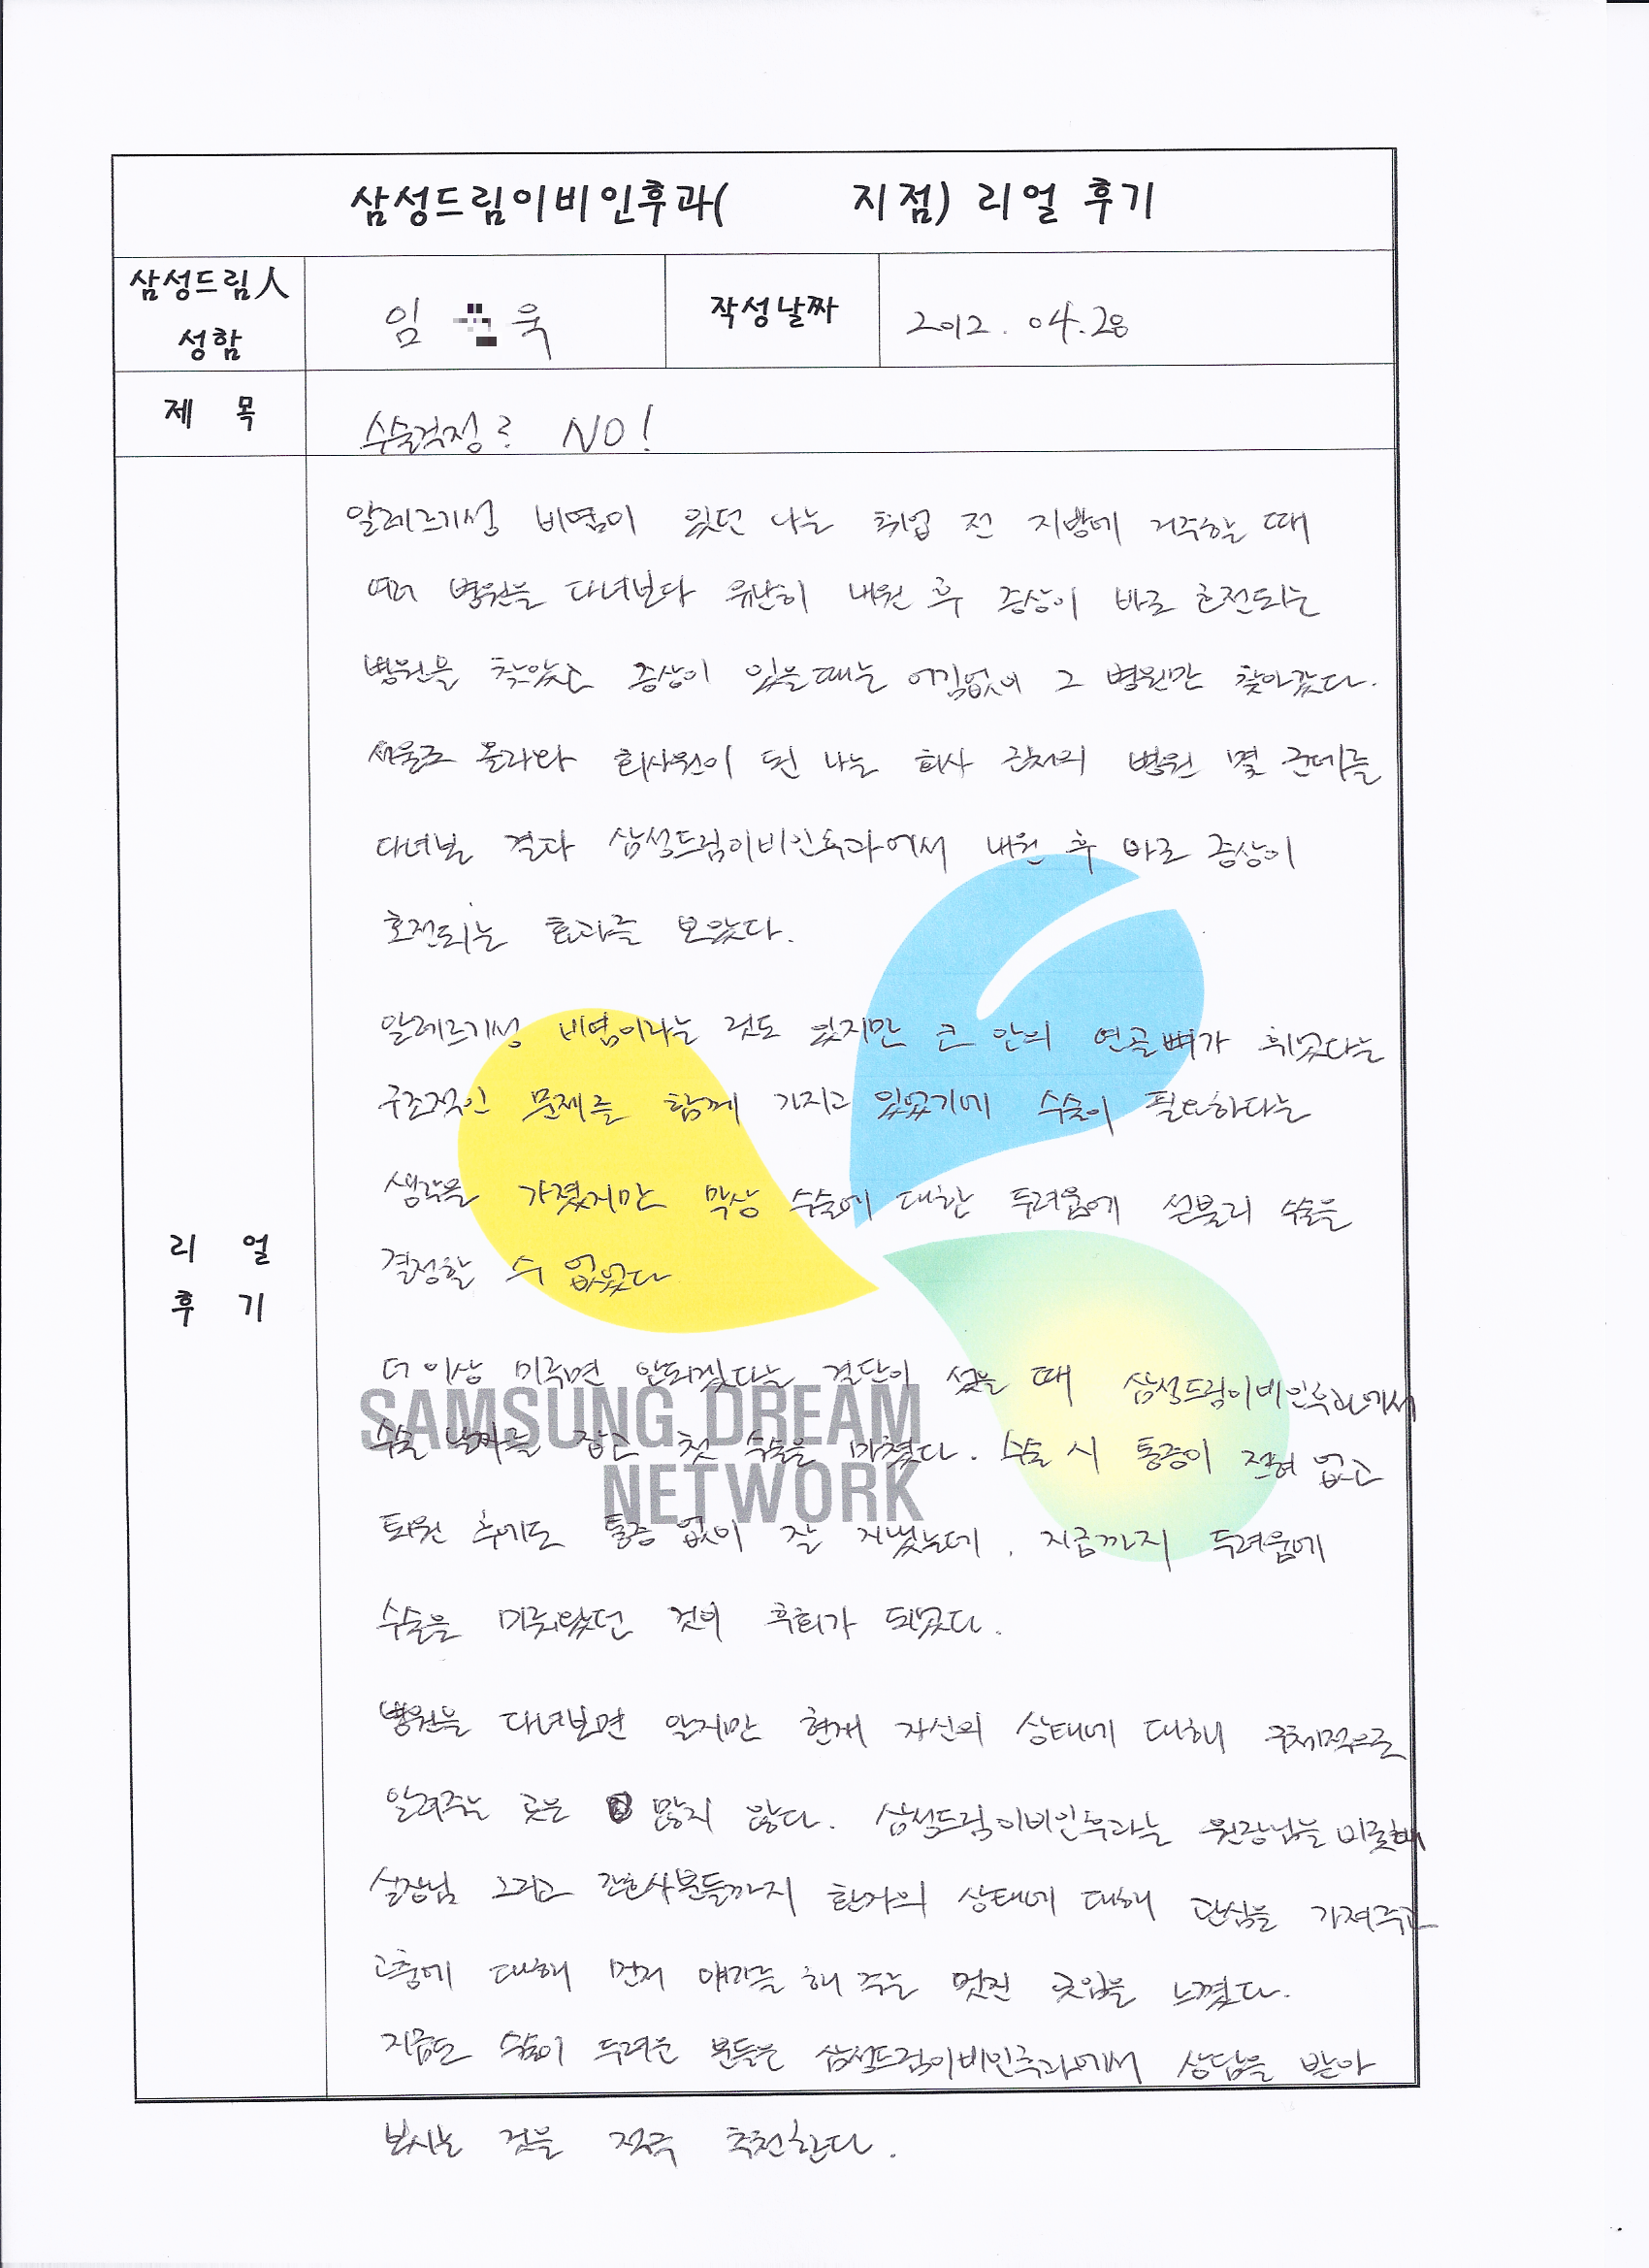 삼성드림이비인후과(          지점) 리얼 후기
삼성드림人
성함
임 욱
작성날짜
2012. 04.28
제 목
수술걱정? NO!
알레르기성 비염이 있던 나는 취업 전 지방에 거주할 때
여러 병원을 다녀보다 유난히 내원 후 증상이 바로 호전되는
병원을 찾았고 증상이 있을때는 어김없이 그 병원만 찾아갔다.
서울로 올라와 회사원이 된 나는 회사 근처의 병원 몇 군데를
다녀본 결과 삼성드림이비인후과에서 내원 후 바로 증상이
호전되는 효과를 보았다.
알레르기성 비염이라는 것도 있지만 코 안의 연골뼈가 휘었다는
구조적인 문제를 함께 가지고 있었기에 수술이 필요하다는
생각을 가졌지만 막상 수술에 대한 두려움에 섣불리 수술을
결정할 수 없었다
리 얼
후 기
더 이상 미루면 안되겠다는 결단이 섰을 때 삼성드림이비인후과에서
수술 날짜를 잡고 첫 수술을 마쳤다. 수술 시 통증이 전혀 없고
퇴원 후에도 통증 없이 잘 지냈는데, 지금까지 두려움에
수술을 미뤄왔던 것이 후회가 되었다.
SAMSUNG DREAM
NETWORK
병원을 다녀보면 알지만 현재 자신의 상태에 대해 구체적으로
알려주는 곳은 많지 않다. 삼성드림이비인후과는 원장님을 비롯해
실장님 그리고 간호사분들까지 환자의 상태에 대해 관심을 가져주고
고충에 대해 먼저 얘기를 해 주는 멋진 곳임을 느꼈다.
지금도 수술이 두려운 분들은 삼성드림이비인후과에서 상담을 받아
보시는 것을 적극 추천한다.